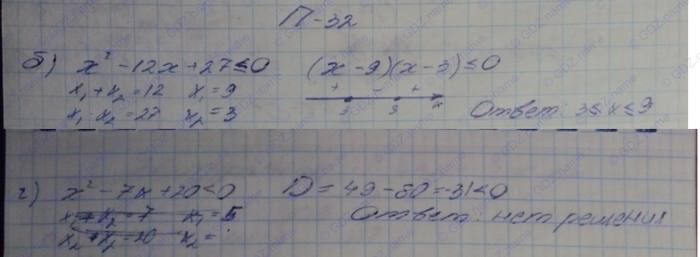 П-32
б) x² - 12x + 27 ≤ 0 (x - 9)(x - 3) ≤ 0
x₁ + x₂ = 12 x₁ = 9
+ - +
x₁ · x₂ = 27 x₂ = 3
3 9 x
Ответ: 3 ≤ x ≤ 9
г) x² - 7x + 20 < 0 D = 49 - 80 = -31 < 0
x₁ + x₂ = 7 x₁ = 5
Ответ: нет решения
x₂ + x₂ = 20 x₂ =